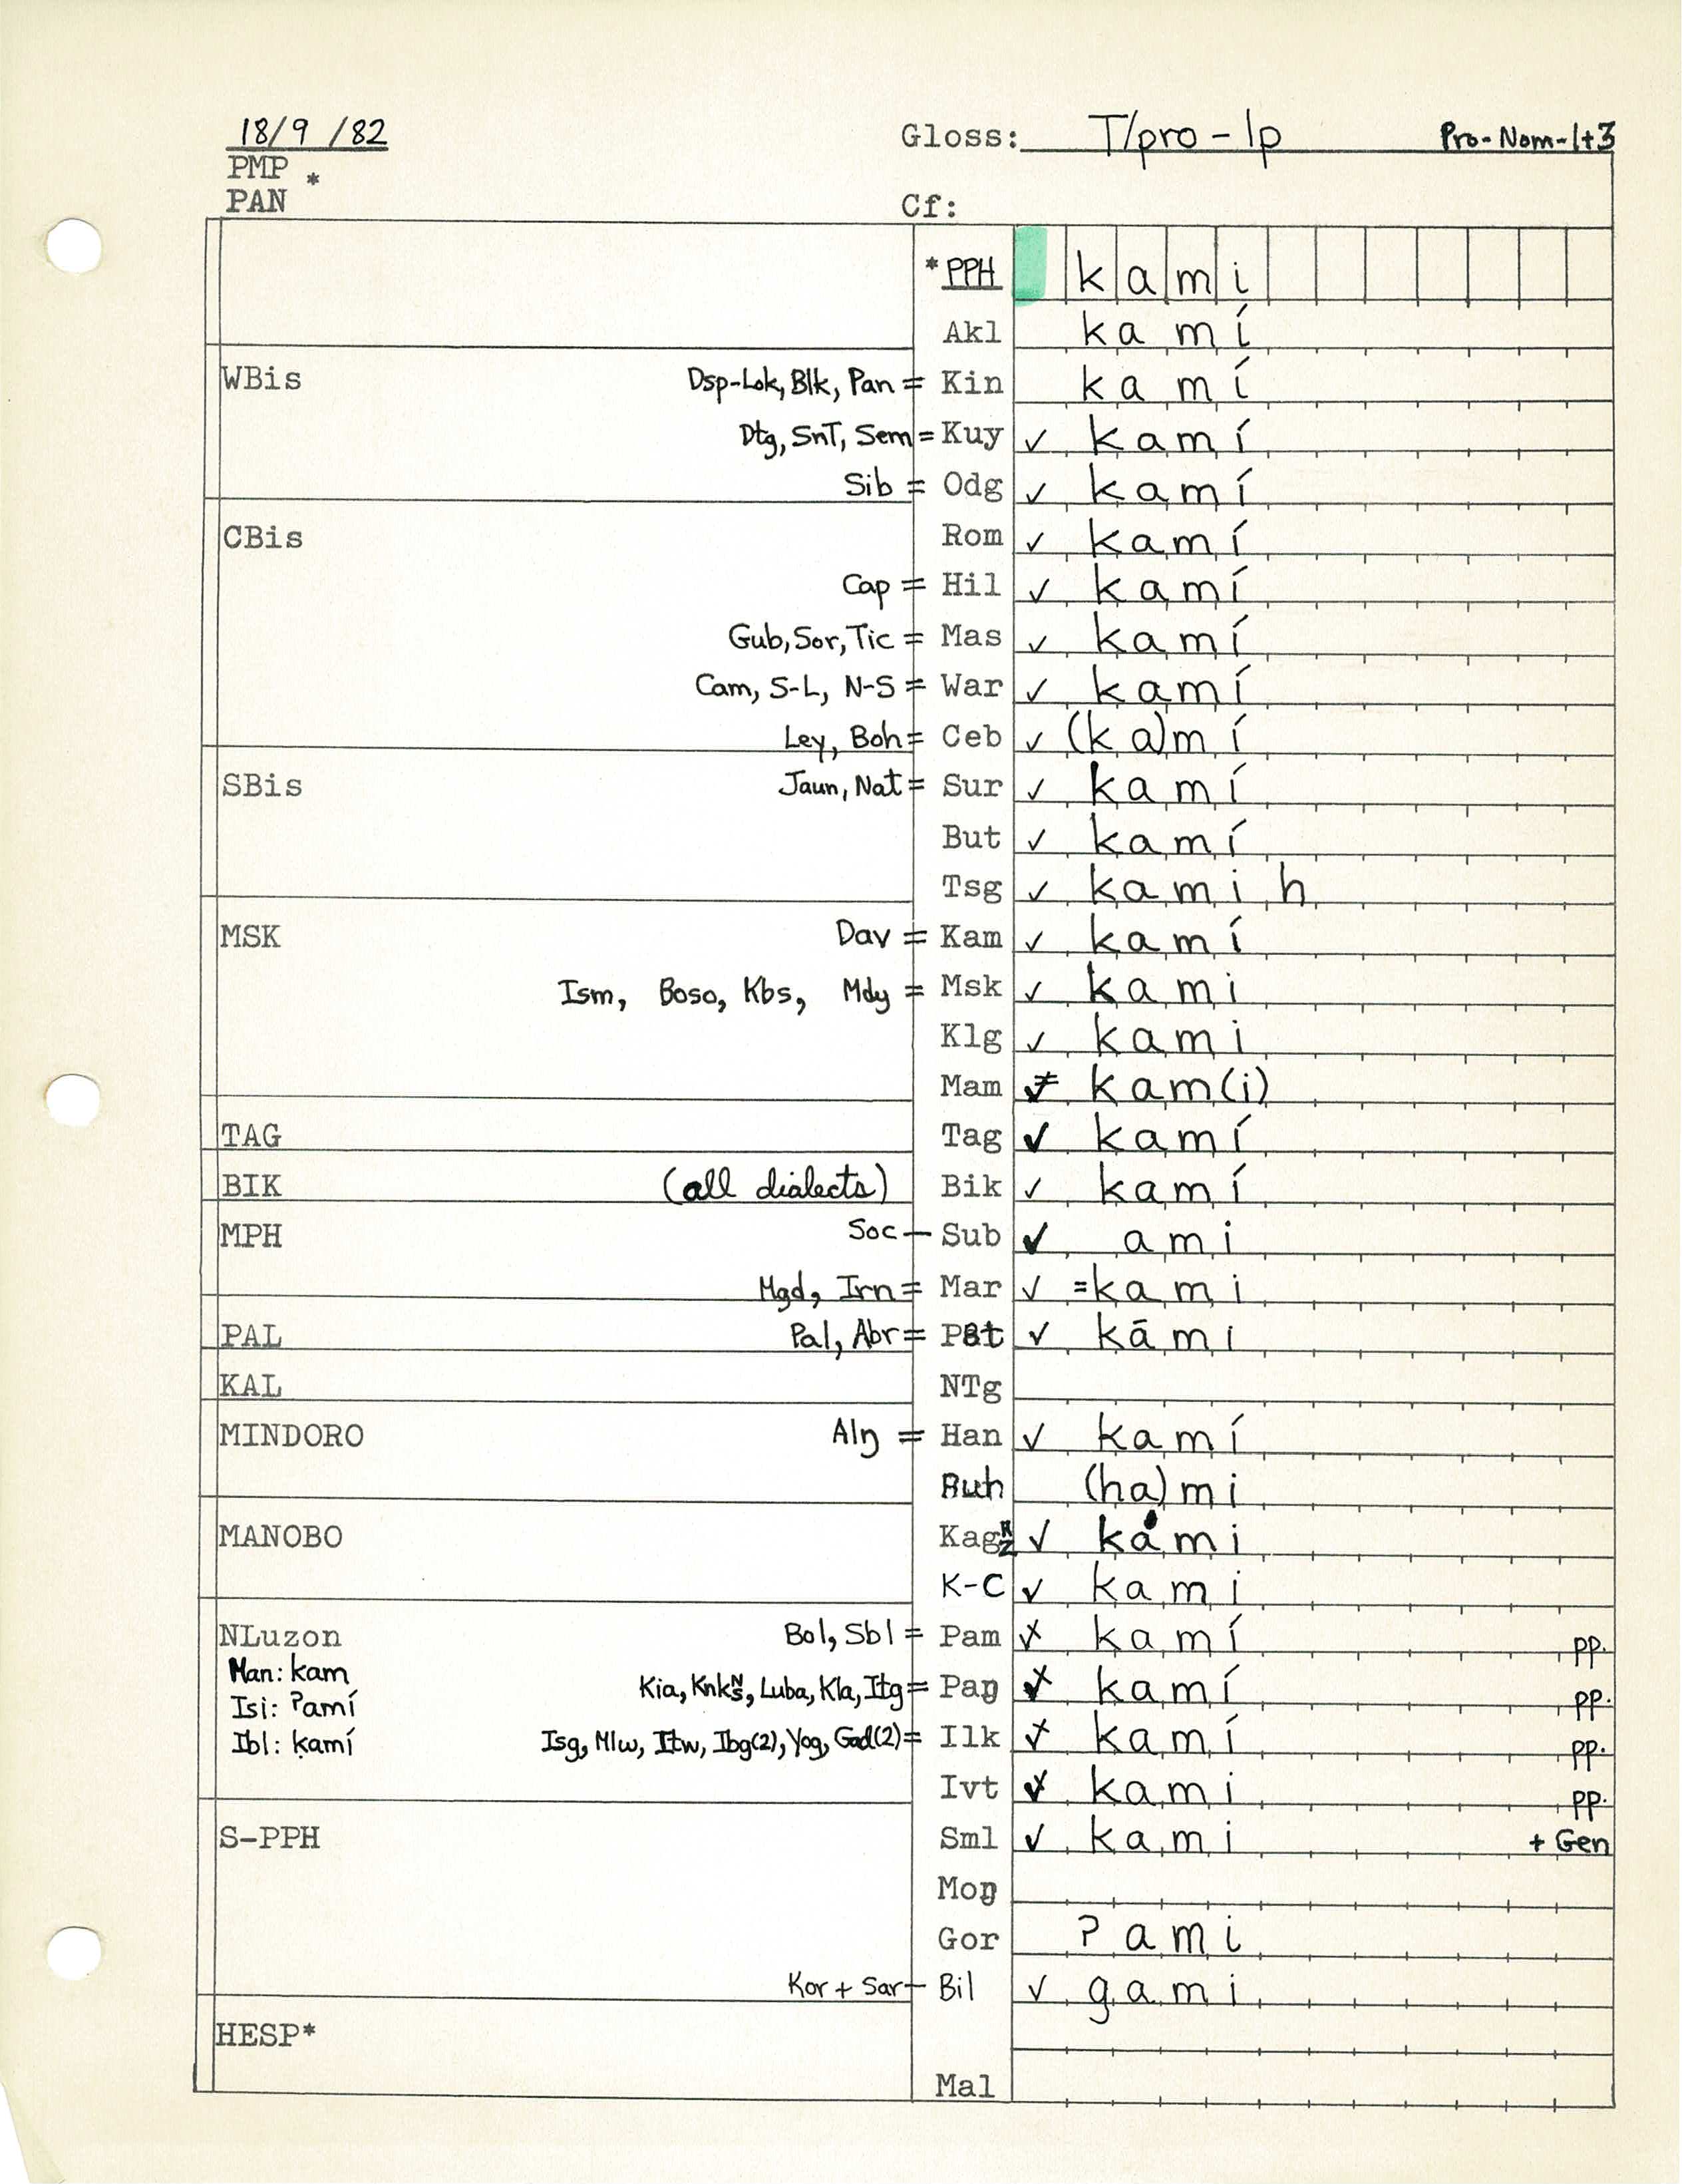 18/9 /82 Gloss: T/pro-1p Pro-Nom-1+3
PMP *
PAN Cf:
*PPH kami
Akl kamí
WBis Dsp-Lok, Blk, Pan = Kin kamí
Dtg, SnT, Sem = Kuy ✓ kamí
Sib = Odg ✓ kamí
CBis Rom ✓ kamí
Cap = Hil ✓ kamí
Gub, Sor, Tic = Mas ✓ kamí
Cam, S-L, N-S = War ✓ kamí
Ley, Boh = Ceb ✓ (ka)mí
SBis Jaun, Nat = Sur ✓ kamí
But ✓ kamí
Tsg ✓ kamih
MSK Dav = Kam ✓ kamí
Ism, Boso, Kbs, Mdy = Msk ✓ kami
Klg ✓ kami
Mam kam(i)
TAG Tag ✓ kamí
BIK (all dialects) Bik ✓ kamí
MPH Soc - Sub ✓ ami
Mgd, Irn = Mar ✓ =kami
PAL Pal, Abr = ✓ kāmi
KAL NTg
MINDORO Alŋ = Han ✓ kamí
Buh (ha)mi
MANOBO Kag ✓ kami
K-C ✓ kami
NLuzon Bol, Sbl = Pam kamí pp.
Man: kam
Kia, Knk, Luba, Kla, Itg = Paŋ kamí pp.
Isi: ʔamí
Ibl: kamí Isg, Mlw, Itw, Ibg(2), Yog, Gad(2) = Ilk kamí pp.
Ivt kami pp.
S-PPH Sml ✓ kami + Gen
Moŋ
Gor ʔami
Kor + Sar - Bil ✓ gami
HESP*
Mal